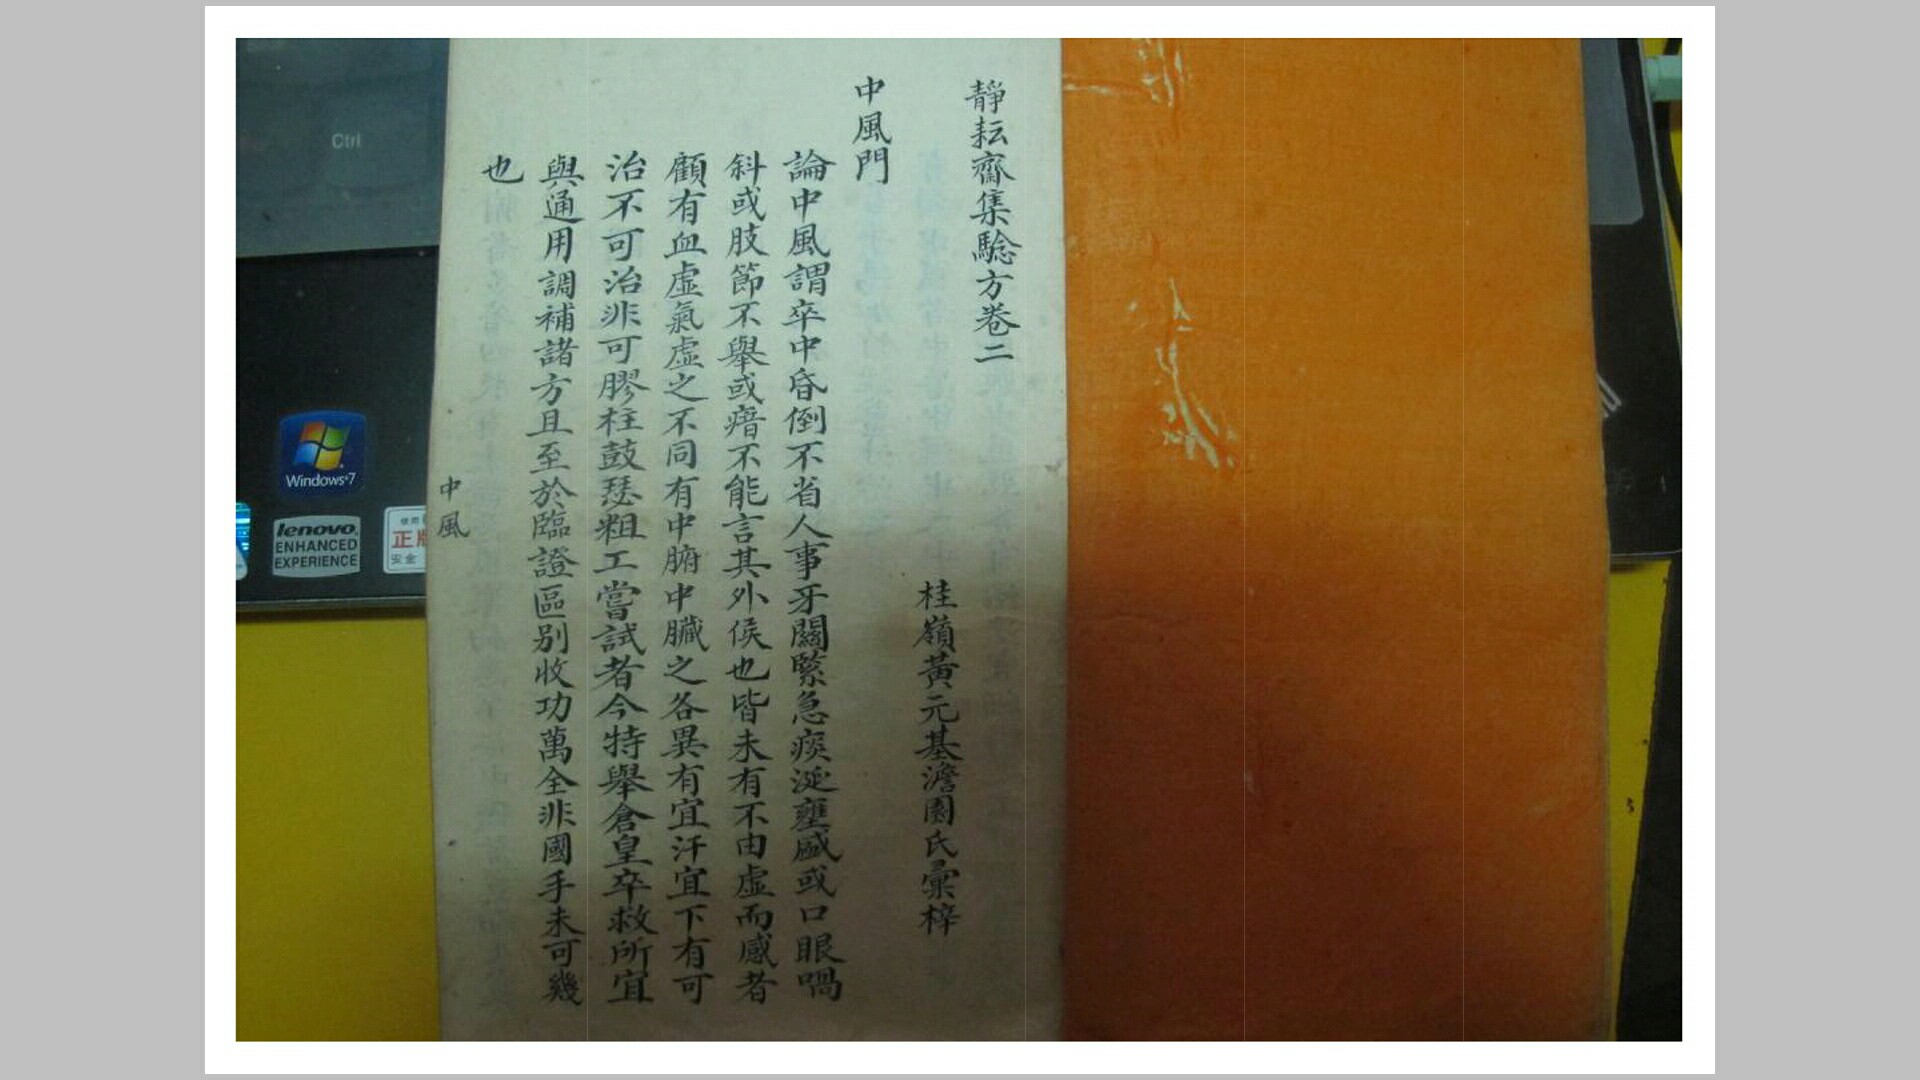 靜耘齋集驗方卷二
桂嶺黃元基澹園氏彙梓
中風門
論中風謂卒中昏倒不省人事牙關緊急痰涎壅盛或口眼喎
斜或肢節不舉或瘖不能言其外候也皆未有不由虛而感者
顧有血虛氣虛之不同有中腑中臟之各異有宜汗宜下有可
治不可治非可膠柱鼓瑟粗工嘗試者今特舉倉皇卒救所宜
與通用調補諸方且至於臨證區别收功萬全非國手未可幾
也
中風
Ctrl
Windows 7
lenovo
ENHANCED
EXPERIENCE
使用
正版
安全